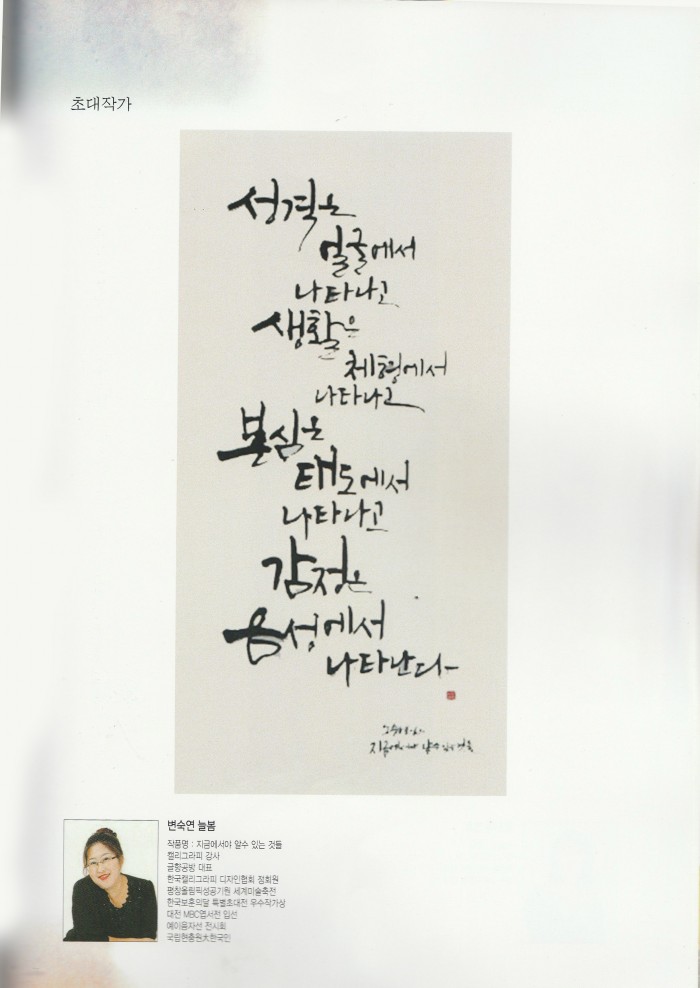 초대작가
성격은
얼굴에서
나타나고
생활은
체형에서
나타나고
본심은
태도에서
나타나고
감정은
음성에서
나타난다
지금에서야 알수 있는 것들
변숙연 늘봄
작품명 : 지금에서야 알수 있는 것들
캘리그라피 강사
글향공방 대표
한국캘리그라피 디자인협회 정회원
평창올림픽성공기원 세계미술축전
한국보훈의달 특별초대전 우수작가상
대전 MBC엽서전 입선
예이음자선 전시회
국립현충원大한국인